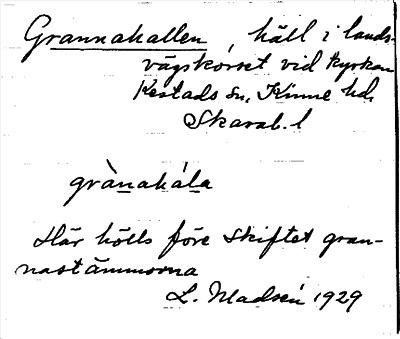 Grannahallen, häll i lands-
vägskorset vid kyrkan
Kestads sn, Kinne hd,
Skarab. l
grànahála
Här hölls före skiftet gran-
nastämmorna
L. Madsén 1929